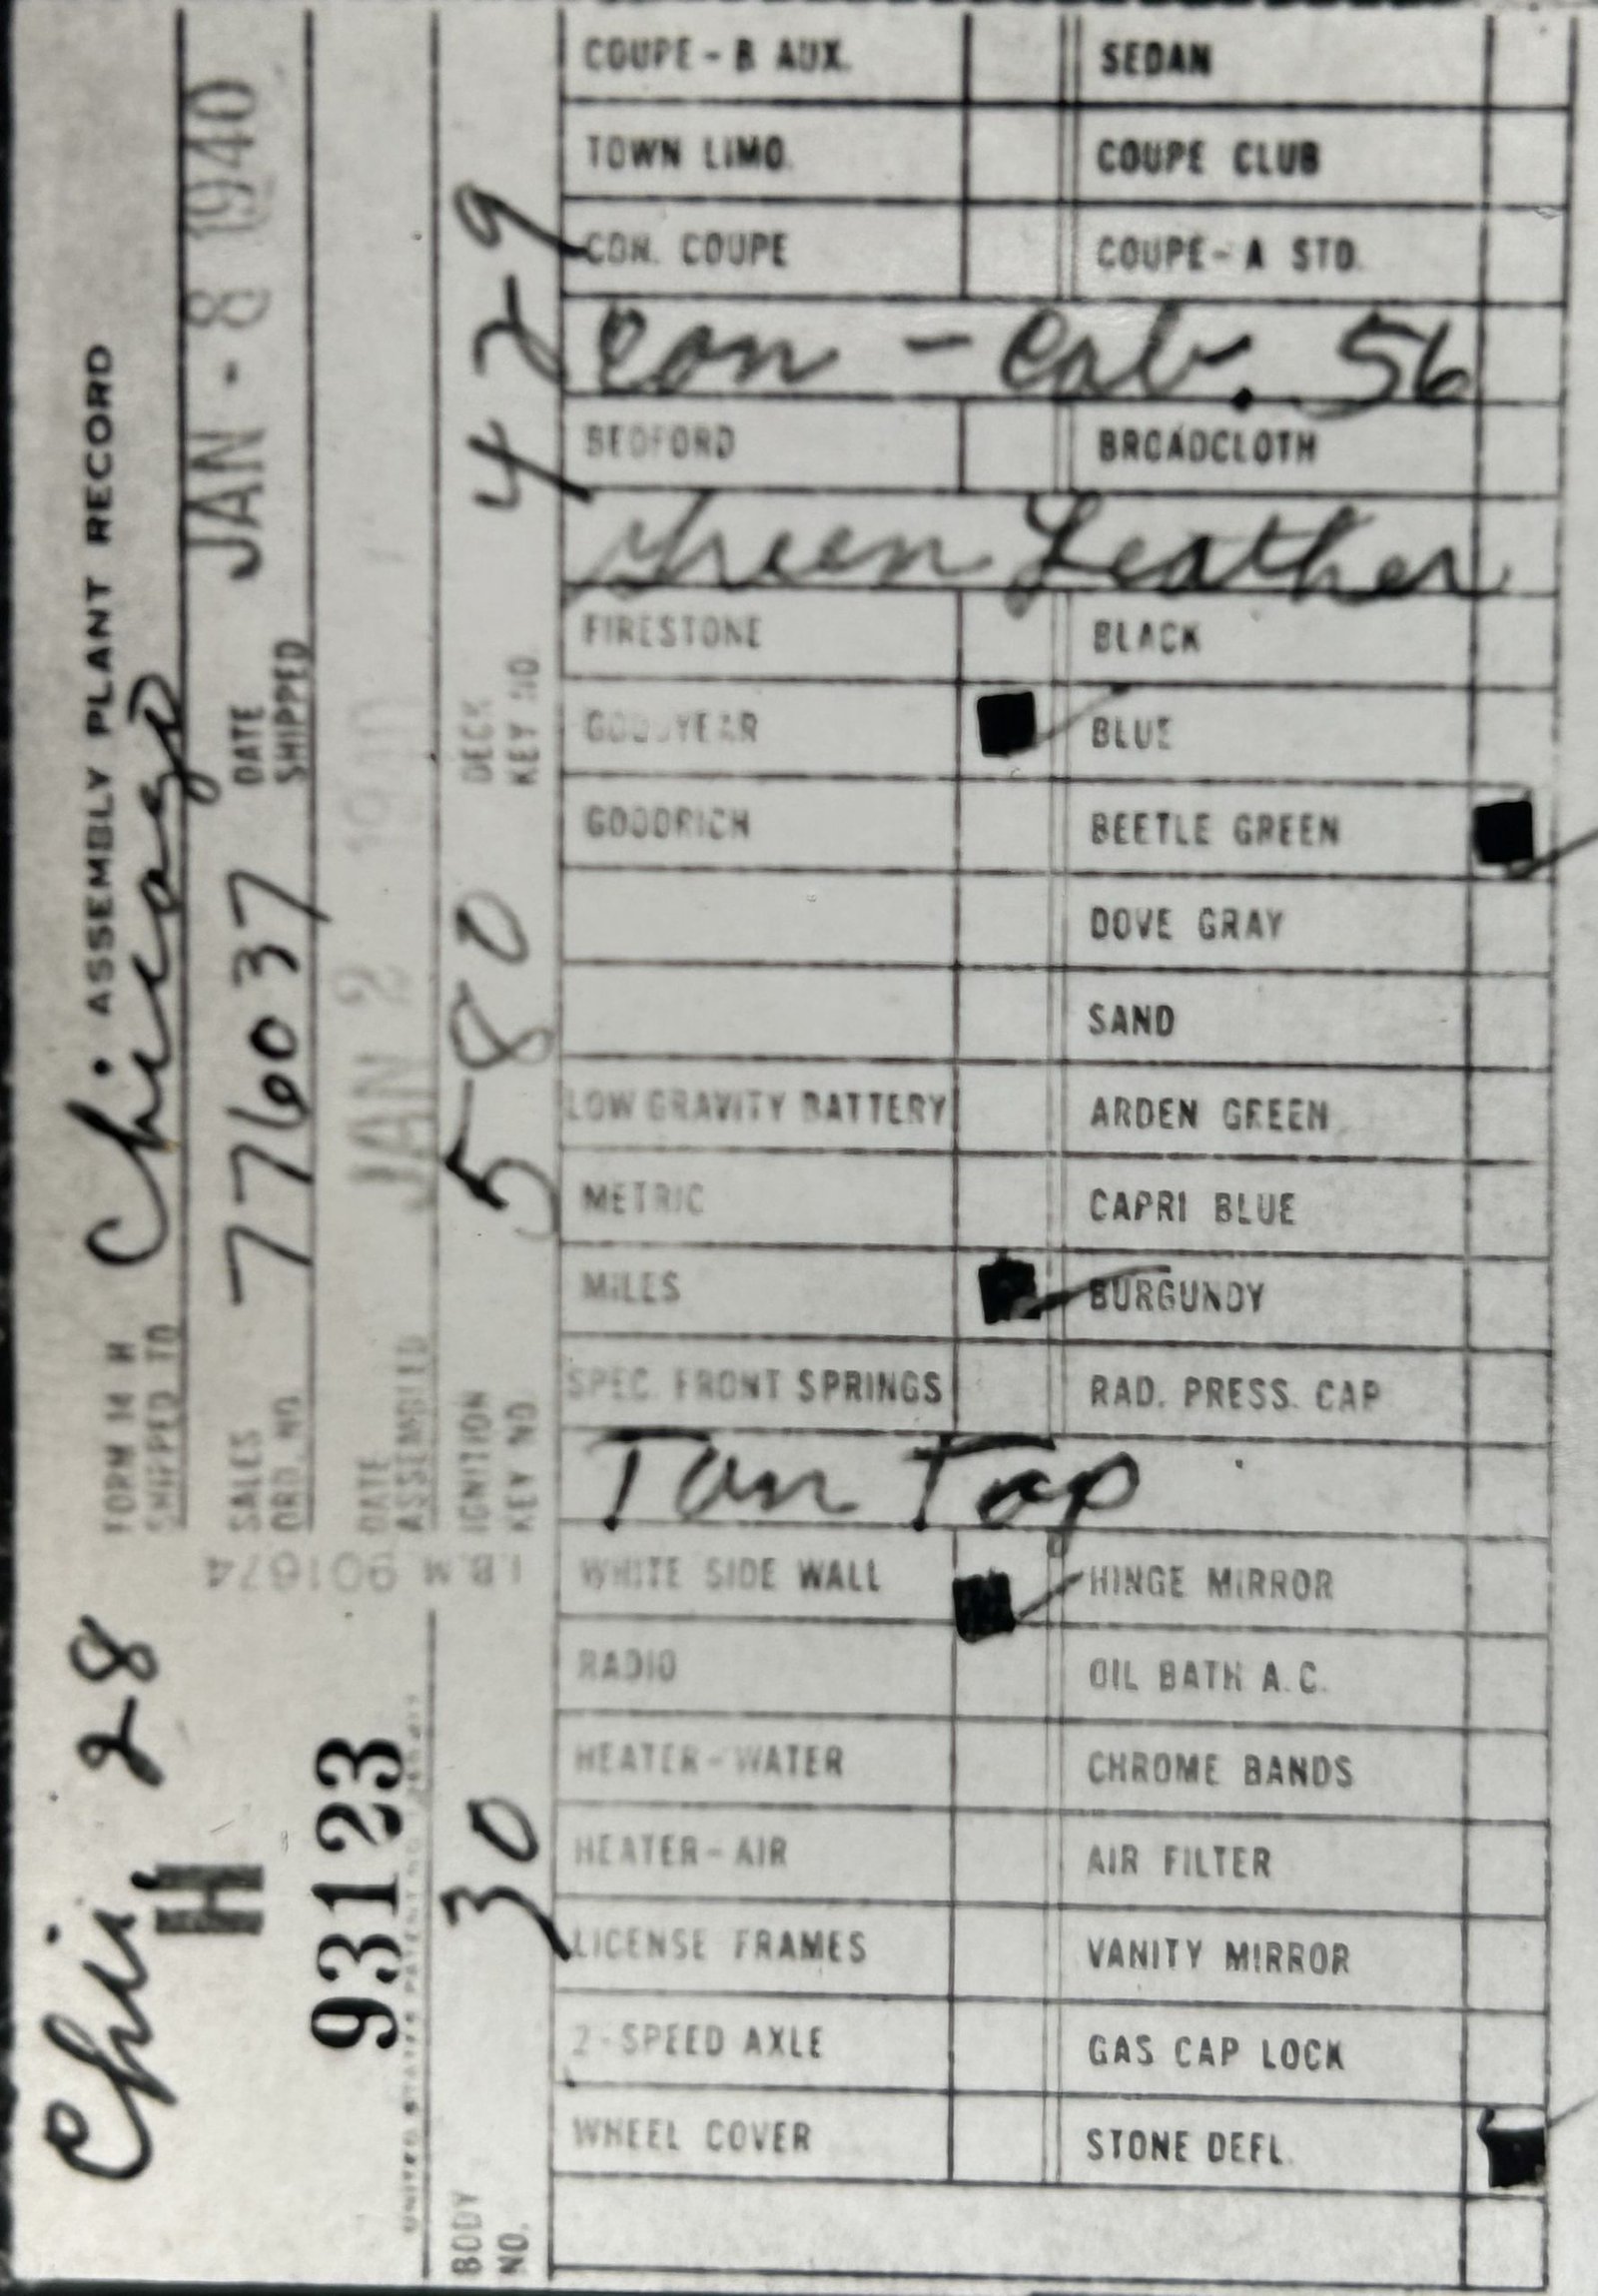 Chi, 28
H
93123
UNITED STATES PATENT NO.
BODY NO. 30
FORM 14 H ASSEMBLY PLANT RECORD
SHIPPED TO Chicago
SALES ORD. NO. 776037 DATE SHIPPED JAN - 8 1940
DATE ASSEMBLED JAN 2 1940
IGNITION KEY NO. 580 DECK KEY NO. 429
I.B.M 901674
COUPE - B AUX. SEDAN
TOWN LIMO. COUPE CLUB
CON. COUPE COUPE - A STD.
Con - Cab. 56
BEDFORD BROADCLOTH
Green Leather
FIRESTONE BLACK
GOODYEAR BLUE
GOODRICH BEETLE GREEN
DOVE GRAY
SAND
LOW GRAVITY BATTERY ARDEN GREEN
METRIC CAPRI BLUE
MILES BURGUNDY
SPEC. FRONT SPRINGS RAD. PRESS. CAP
Tan Top
WHITE SIDE WALL HINGE MIRROR
RADIO OIL BATH A.C.
HEATER - WATER CHROME BANDS
HEATER - AIR AIR FILTER
LICENSE FRAMES VANITY MIRROR
2 - SPEED AXLE GAS CAP LOCK
WHEEL COVER STONE DEFL.